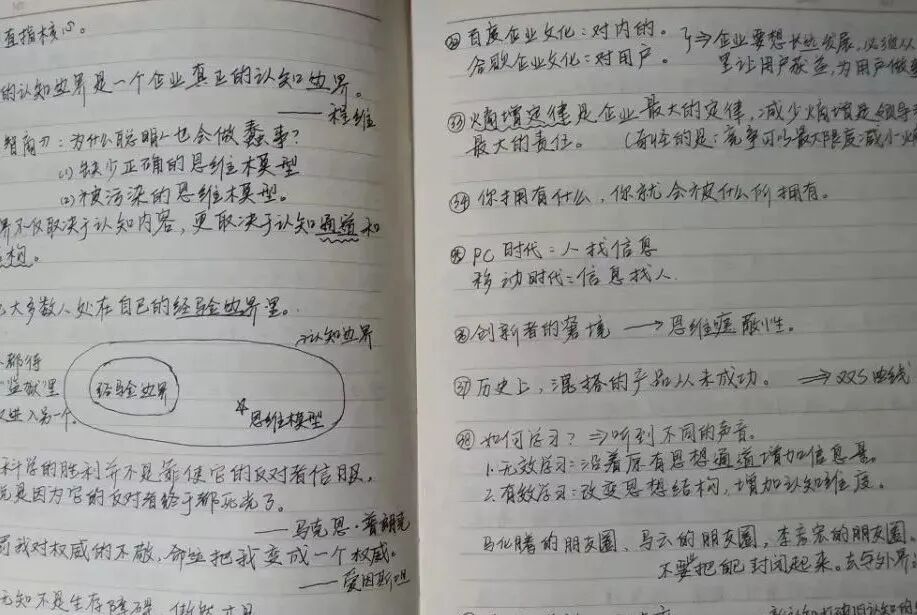 直指核心。
的认知边界是一个企业真正的认知边界。
——程维
智商刀：为什么聪明人也会做蠢事？
(1) 缺少正确的思维模型
(2) 被污染的思维模型。
界不仅取决于认知内容，更取决于认知通道和
构。
大多数人处在自己的经验边界里。
认知边界
都待
"监狱"里
进入另一个。
经验边界
思维模型
科学的胜利并不是靠使它的反对者信服，
是因为它的反对者终于都死光了。
——马克思·普朗克
罚我对权威的不敬，命运把我变成一个权威。
——爱因斯坦
无知不是生存障碍，傲慢才是
百度企业文化：对内的。
谷歌企业文化：对用户。
⇒企业要想长远发展，必须从
里让用户获益，为用户做
㉝ 熵增定律是企业最大的定律，减少熵增是领导
最大的责任。（奇怪的是：竞争可以最大限度减小
㉞ 你拥有什么，你就会被什么所拥有。
PC时代：人找信息
移动时代：信息找人.
创新者的窘境 → 思维遮蔽性。
㊲ 历史上，混搭的产品从未成功。 ⇒ XXS曲线
㊳ 如何学习？⇒听到不同的声音。
1.无效学习：沿着原有思想通道增加信息量。
2.有效学习：改变思想结构，增加认知维度。
马化腾的朋友圈、马云的朋友圈，李彦宏的朋友圈
不要把自己封闭起来。去与外界